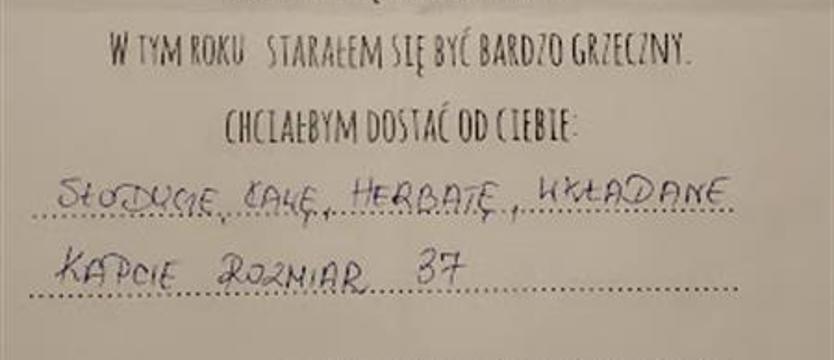 W TYM ROKU STARAŁEM SIĘ BYĆ BARDZO GRZECZNY.
CHCIAŁBYM DOSTAĆ OD CIEBIE:
SŁODYCZE, KAWĘ, HERBATĘ, WKŁADANE
KAPCIE ROZMIAR 37